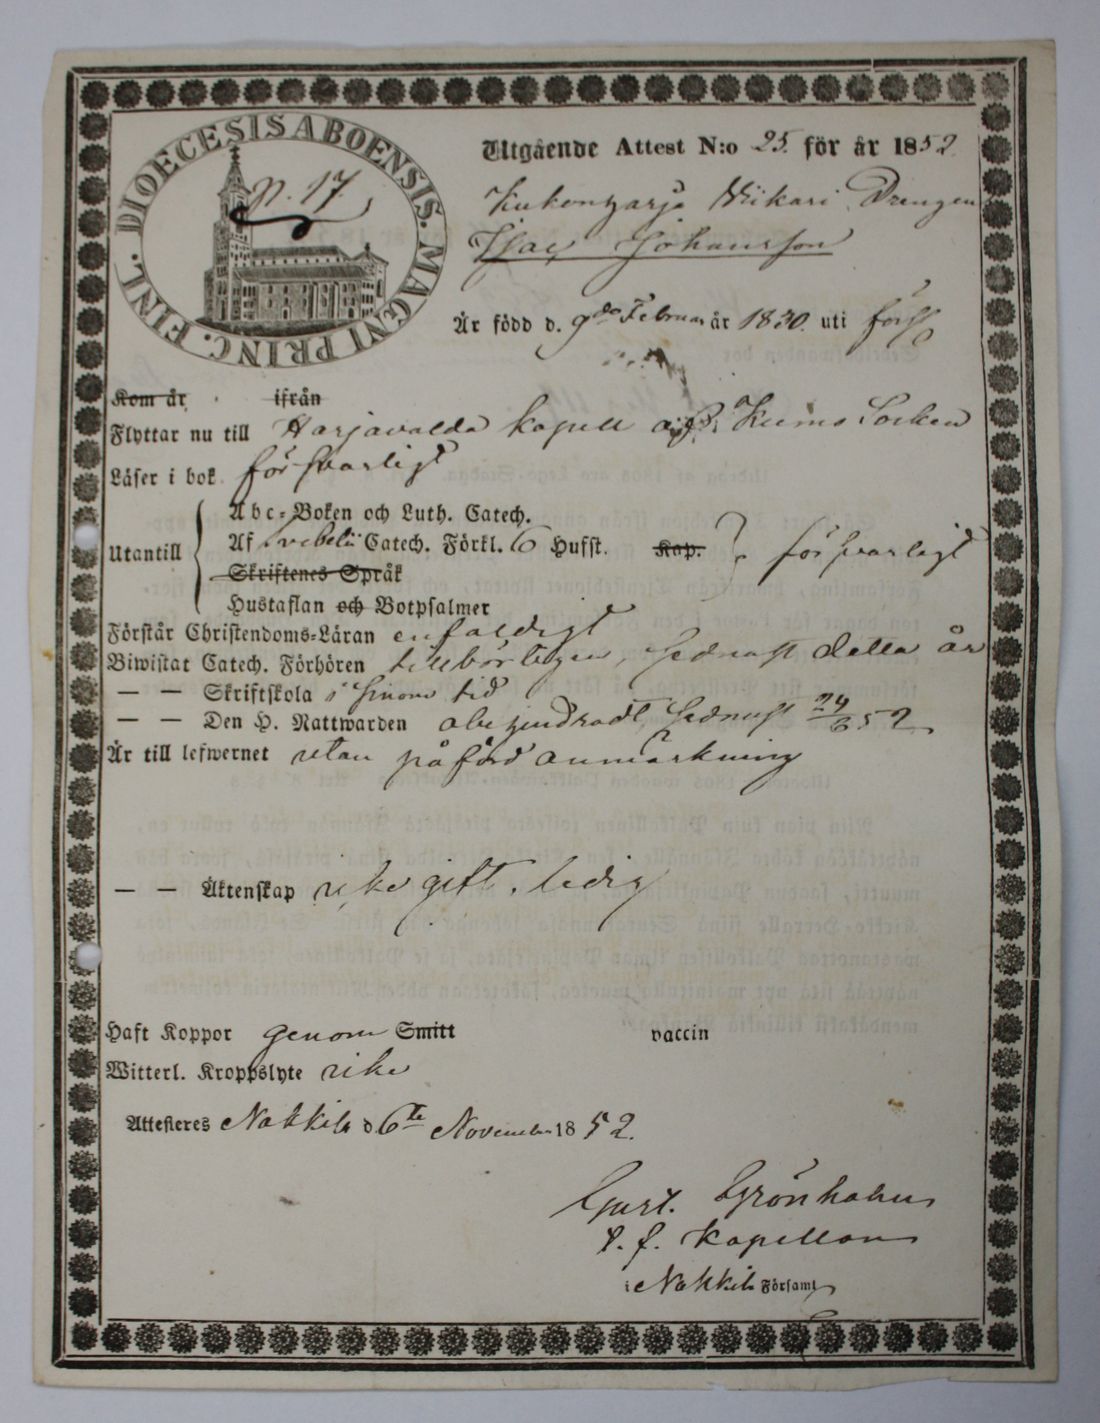 DIOECESIS ABOENSIS. MAGNI PRINC. FINL.
N. 17
Utgående Attest N:o 25. för år 1852.
Kukonharja Wikari Drengen
Isac Johansson
Är född d. 9de Februari år 1830. uti förs.
Kom år ifrån
Flyttar nu till Harjavalda kapell af Kumo Socken
Läser i bok. försvarligt
Abc-Boken och Luth. Catech.
Utantill Af Svebelii Catech. Förkl. 6 Hufst. Kap. försvarligt
Skriftenes Språk
Hustaflan och Botpsalmer
Förstår Christendoms-Läran enfaldigt
Biwistat Catech. Förhören tillbörligen, sednast detta år
— — Skriftskola i sinom tid
— — Den H. Nattwarden obehindradt, sednast 24/6 52.
Är till lefwernet utan påförd anmärkning
— — Äktenskap icke gift. ledig
Haft Koppor genom Smitt vaccin
Witterl. Kroppslyte icke
Attesteras Nakkila d. 6te November 1852.
Gust. Grönholm
t. f. Kapellan
i Nakkila Församl.